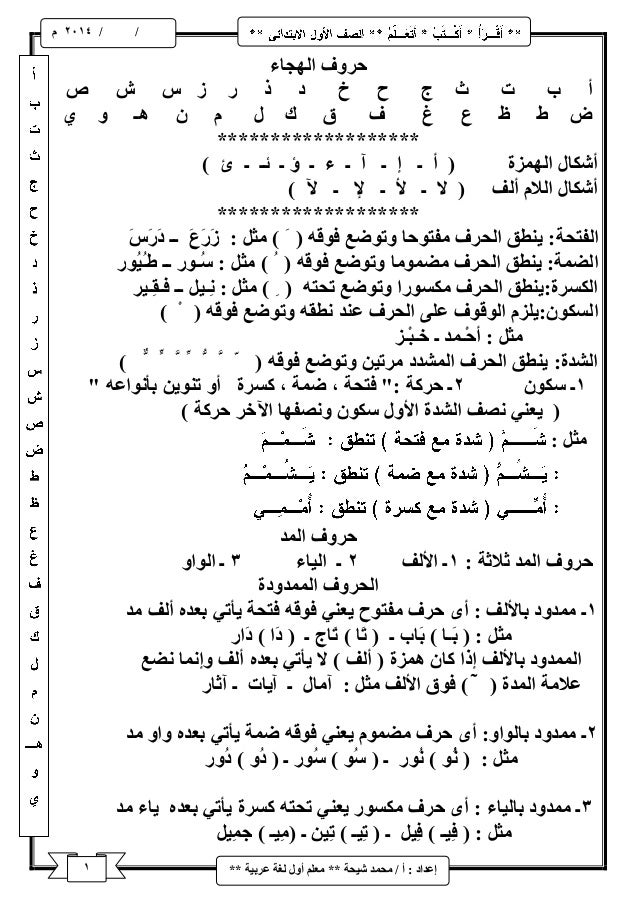 ** أَقْـــرَأُ * أَكْـــتُبُ * أَتَعَـــلَّمُ ** الصف الأول الابتدائى **
/ / ٢٠١٤ م
حروف الهجاء
أ ب ت ث ج ح خ د ذ ر ز س ش ص
ض ط ظ ع غ ف ق ك ل م ن هـ و ي
*******************
أشكال الهمزة ( أ - إ - آ - ء - ؤ - ئـ - ئ )
أشكال اللام ألف ( لا - لأ - لإ - لآ )
*******************
الفتحة: ينطق الحرف مفتوحا وتوضع فوقه ( َ ) مثل : زَرَعَ – دَرَسَ
الضمة: ينطق الحرف مضموما وتوضع فوقه ( ُ ) مثل : سُـور – طُـيُور
الكسرة:ينطق الحرف مكسورا وتوضع تحته ( ِ ) مثل : نِـيل – فَـقِـير
السكون:يلزم الوقوف على الحرف عند نطقه وتوضع فوقه ( ْ )
مثل : أحْـمد - خَـبْـز
الشدة: ينطق الحرف المشدد مرتين وتوضع فوقه ( ّ َّ ُّ ِّ ًّ ٍّ ٌّ )
١- سكون ٢- حركة :" فتحة ، ضمة ، كسرة أو تنوين بأنواعه "
( يعني نصف الشدة الأول سكون ونصفها الآخر حركة )
مثل : شَـــــمَّ ( شدة مع فتحة ) تنطق : شَـــمْـــمَ
: يَـــشُـــمُّ ( شدة مع ضمة ) تنطق : يَـــشُـــمْـــمُ
: أُمِّـــــي ( شدة مع كسرة ) تنطق : أُمْـــمِـــي
حروف المد
حروف المد ثلاثة : ١- الألف ٢ - الياء ٣ - الواو
الحروف الممدودة
١- ممدود بالألف : أى حرف مفتوح يعني فوقه فتحة يأتي بعده ألف مد
مثل : ( بَـا ) بَاب - ( تَا ) تَاج - ( دَا ) دَار
الممدود بالألف إذا كان همزة ( ألف ) لا يأتي بعده ألف وإنما نضع
علامة المدة ( ~ ) فوق الألف مثل : آمال - آيات - آثار
٢- ممدود بالواو: أى حرف مضموم يعني فوقه ضمة يأتي بعده واو مد
مثل : ( نُو ) نُور - ( سُو ) سُور - ( دُو ) دُور
٣- ممدود بالياء : أى حرف مكسور يعني تحته كسرة يأتي بعده ياء مد
مثل : ( فِيـ ) فِيل - ( تِيـ ) تِين - (مِيـ ) جمِيل
أ
ب
ت
ث
ج
ح
خ
د
ذ
ر
ز
س
ش
ص
ض
ط
ظ
ع
غ
ف
ق
ك
ل
م
ن
هـ
و
ي
إعداد : أ / محمد شيحة ** معلم أول لغة عربية **
١